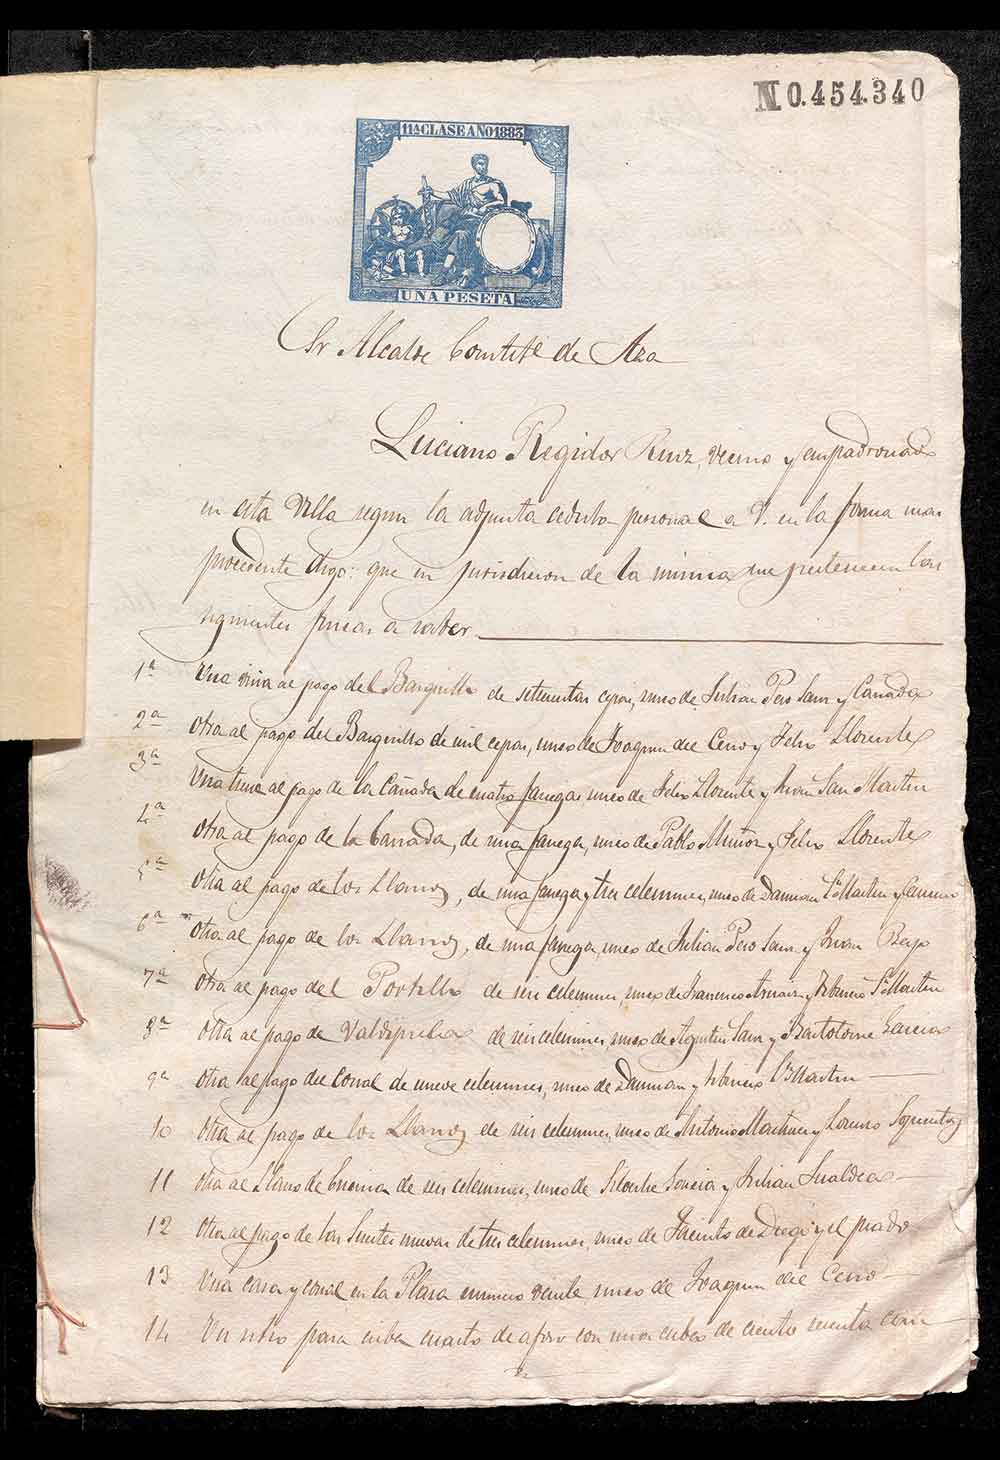 N 0.454.340
11ª CLASE AÑO 1883
UNA PESETA
Sr Alcalde Constitl de Aza
Luciano Regidor Ruiz, vecino y empadronado
en esta Villa segun la adjunta cedula personal a V. en la forma mas
procedente digo: que en jurisdiccion de la misma me pertenecen las
siguientes fincas a saber
1ª Una viña al pago del Barquillo de setecientas cepas, surco de Julian Pero Sanz y Cañada
2ª Otra al pago del Barquillo de mil cepas, surco de Joaquin del Cerro y Felix Llorente
3ª Una tierra al pago de la Cañada de cuatro fanegas surco de Felix Llorente y Juan San Martin
4ª Otra al pago de la Cañada, de una fanega, surco de Pablo Muñoz y Felix Llorente
5ª Otra al pago de los Llanos, de una fanega y tres celemines, surco de Damian Sn Martin y Camino
6ª Otra al pago de los Llanos, de una fanega, surco de Julian Pero Sanz y Juan
7ª Otra al pago del Portillo de seis celemines, surco de Francisco y Sn Martin
8ª Otra al pago de de seis celemines, surco de Agustin Sanz y Bartolome Garcia
9ª Otra al pago del Corral de nueve celemines, surco de Damian y Sn Martin
10 Otra al pago de los Llanos de seis celemines, surco de Antonio Martinez y Lorenzo
11 Otra al Llano de Encima de seis celemines, surco de Garcia y Julian
12 Otra al pago de las Fuentes nuevas de tres celemines, surco de Jacinto de Diego y el prado
13 Una casa y corral en la Plaza numero veinte surco de Joaquin del Cerro
14 Un sitio para cuba cuarto de aforo con una cuba de ciento